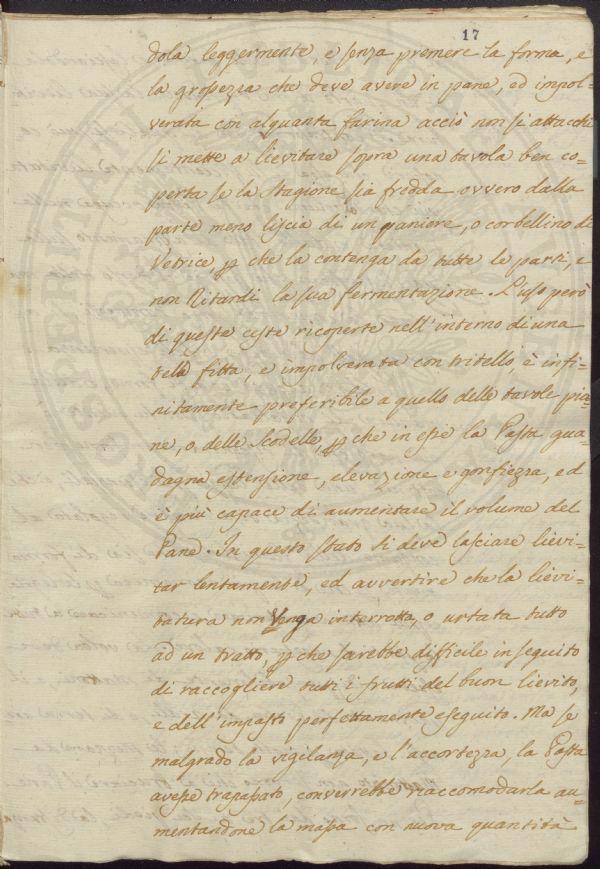 17
dola leggermente, e senza premere la forma, e
la grossezza che deve avere in pane, ed impol=
verata con alquanta farina acciò non si attacchi
si mette a lievitare sopra una tavola ben co=
perta se la Stagione sia fredda ovvero dalla
parte meno liscia di un paniere, o corbellino di
Vetrice, p che la contenga da tutte le parti, e
non Ritardi la sua fermentazione. L'uso però
di queste ceste ricoperte nell'interno di una
tela fitta, e impolverata con tritello, è infi=
nitamente preferibile a quello delle tavole pia=
ne, o delle Scodelle, p che in esse la Pasta gua=
dagna estensione, elevazione e gonfiezza, ed
è più capace di aumentare il volume del
Pane. In questo stato si deve lasciare lievi=
tar lentamente, ed avvertire che la lievi=
tatura non Venga interrotta, o urtata tutto
ad un tratto, p che sarebbe difficile in seguito
di raccogliere tutti i frutti del buon lievito,
e dell'impasto perfettamente eseguito. Ma se
malgrado la vigilanza, e l'accortezza, la Pasta
avesse trapassato, converrebbe raccomodarla au=
mentandone la massa con nuova quantità